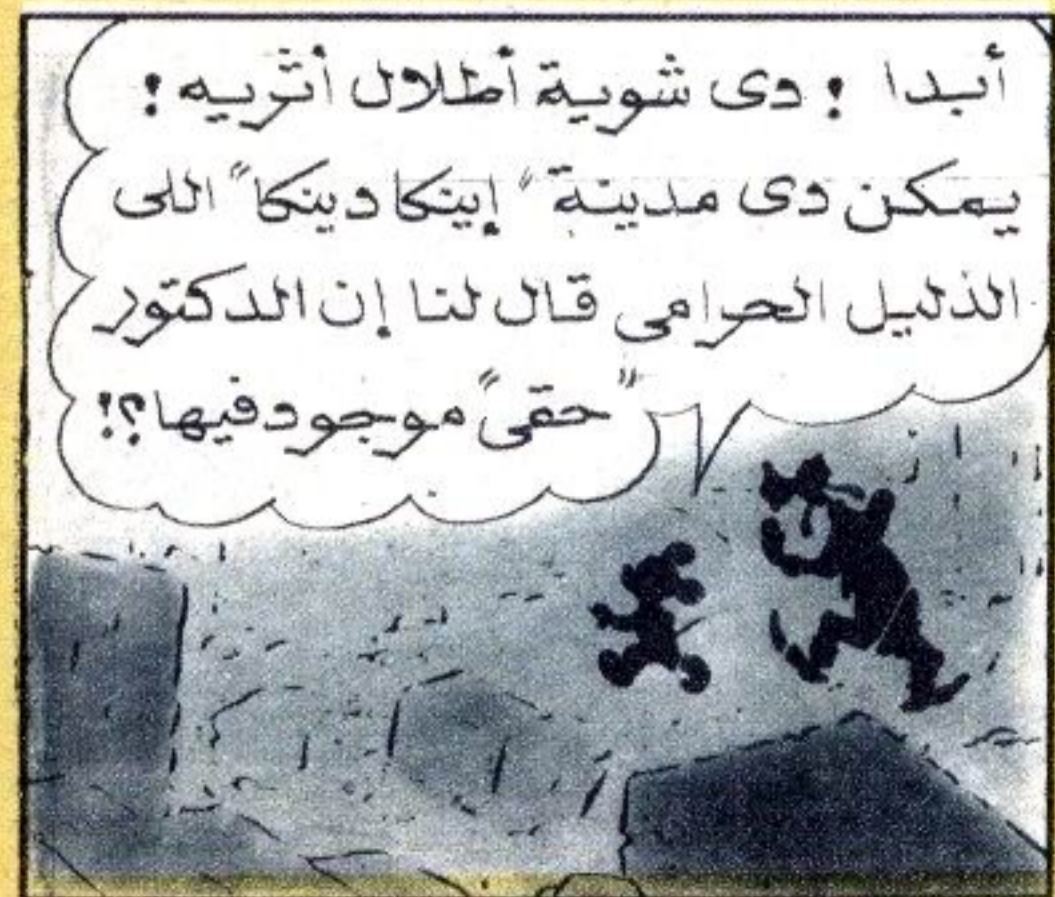 أبدا ! دى شوية أطلال أثريه !
يمكن دى مدينة "إينكا دينكا" اللى
الذليل الحرامى قال لنا إن الدكتور
"حقى" موجود فيها؟!